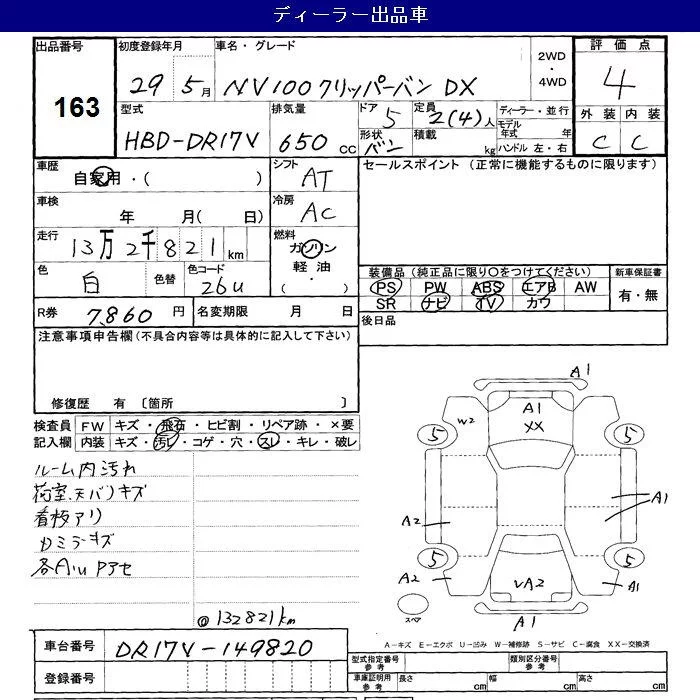 ディーラー出品車
出品番号 163
初度登録年月 29 5月
車名・グレード NV100クリッパーバン DX
2WD・4WD
評価点 4
型式 HBD-DR17V
排気量 650 cc
ドア 5
形状 バン
定員 2(4)人
積載 kg
ディーラー・並行
モデル年式 年
ハンドル 左・右
外装 C
内装 C
車歴 自家用・( )
シフト AT
セールスポイント (正常に機能するものに限ります)
車検 年 月( 日)
冷房 AC
走行 13万2千821km
燃料 ガソリン 軽油・
色 白 色替
色コード 26u
装備品(純正品に限り○をつけてください)
PS PW ABS エアB AW
SR ナビ TV カワ
新車保証書 有・無
R券 7,860 円
名変期限 月 日
後日品
注意事項申告欄(不具合内容等は具体的に記入して下さい)
修復歴 有 〔箇所 〕
検査員記入欄
FW キズ・飛石・ヒビ割・リペア跡・×要
内装 キズ・汚レ・コゲ・穴・スレ・キレ・破レ
ルーム内汚れ
荷室、天バリキズ
看板アリ
カミラーキズ
各A1u Pアセ
@132821km
A1
W2
A1
XX
5
5
A1
A2
5
5
A2
vA2
A1
スペア
A1
車台番号 DR17V-149820
登録番号
A-キズ E-エクボ U-凹み W-補修跡 S-サビ C-腐食 XX-交換済
型式指定番号 参考
類別区分番号 参考
車庫証明用 参考 長さ cm 幅 cm 高さ cm